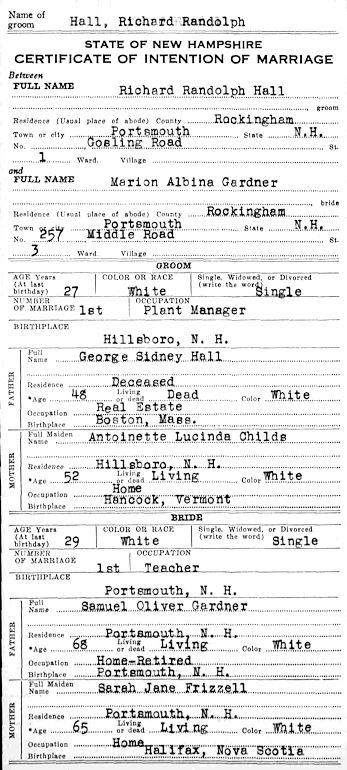 Name of groom Hall, Richard Randolph
STATE OF NEW HAMPSHIRE
CERTIFICATE OF INTENTION OF MARRIAGE
Between
FULL NAME Richard Randolph Hall
groom
Residence (Usual place of abode) County Rockingham
Town or city Portsmouth State N.H.
No. Gosling Road St.
1 Ward. Village
and
FULL NAME Marion Albina Gardner
bride
Residence (Usual place of abode) County Rockingham
Town or city Portsmouth State N.H.
No. 257 Middle Road St.
3 Ward Village
GROOM
AGE Years (At last birthday) 27 COLOR OR RACE White Single, Widowed, or Divorced (write the word) Single
NUMBER OF MARRIAGE 1st OCCUPATION Plant Manager
BIRTHPLACE
Hillsboro, N. H.
FATHER
Full Name George Sidney Hall
Residence Deceased
*Age 48 Living or dead Dead Color White
Occupation Real Estate
Birthplace Boston, Mass.
MOTHER
Full Maiden Name Antoinette Lucinda Childs
Residence Hillsboro, N. H.
*Age 52 Living or dead Living Color White
Occupation Home
Birthplace Hancock, Vermont
BRIDE
AGE Years (At last birthday) 29 COLOR OR RACE White Single, Widowed, or Divorced (write the word) Single
NUMBER OF MARRIAGE 1st OCCUPATION Teacher
BIRTHPLACE
Portsmouth, N. H.
FATHER
Full Name Samuel Oliver Gardner
Residence Portsmouth, N. H.
*Age 68 Living or dead Living Color White
Occupation Home-Retired
Birthplace Portsmouth, N. H.
MOTHER
Full Maiden Name Sarah Jane Frizzell
Residence Portsmouth, N. H.
*Age 65 Living or dead Living Color White
Occupation Home
Birthplace Halifax, Nova Scotia